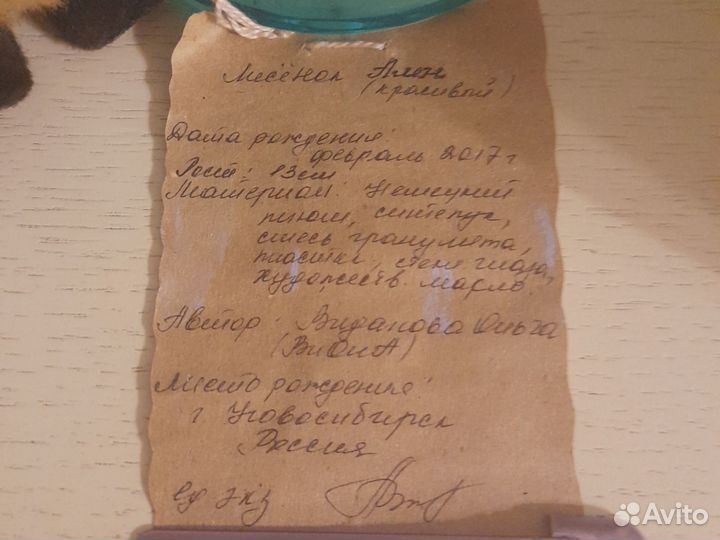 Лисёнок Ален
(красивый)
Дата рождения:
февраль 2017 г
Рост: 13 см
Материал: Немецкий
плюш, синтепух,
смесь гранулята,
пластик, стекл глаза,
художеств. масло.
Автор: Виданова Ольга
(ВиОлА)
Место рождения:
г. Новосибирск
Россия
ед экз
Avito